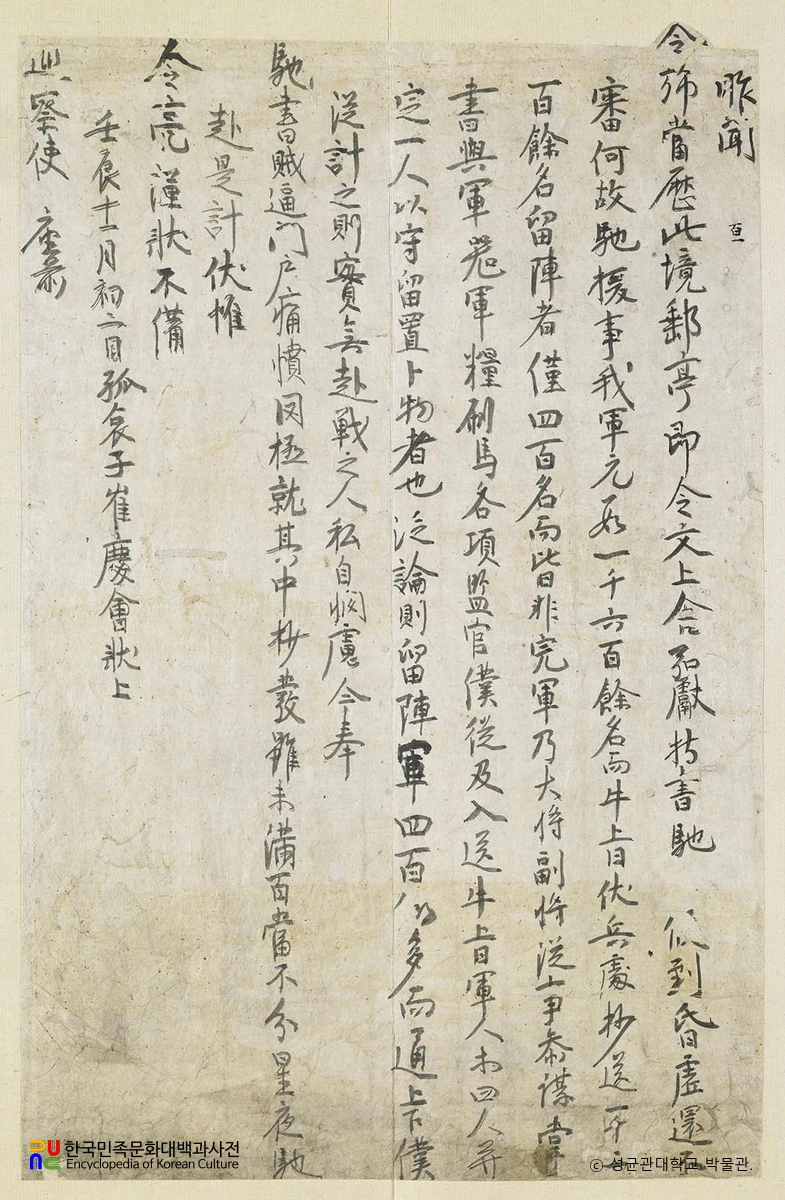 昨聞
令旆當歷此境郵亭即令文上舍弘獻持書馳 候到昏虛還不
審何故馳援事我軍元數一千六百餘名而牛旨伏兵處抄送一千二
百餘名留陣者僅四百名而皆非完軍乃大將副將從事參謀掌
書與軍器軍糧刷馬各項監官僕從及入送牛旨軍人木四人并
定一人以守留置卜物者也泛論則留陣軍四百似多而通上下僕
從計之則實無赴戰之人私自憫慮今奉
馳書賊逼門戶痛憤罔極就其中抄發雖未滿百當不分星夜馳
赴是計伏惟
令亮謹狀不備
壬辰十一月初二日孤哀子崔慶會狀上
巡察使 座前
한국민족문화대백과사전
Encyclopedia of Korean Culture
ⓒ 성균관대학교 박물관.